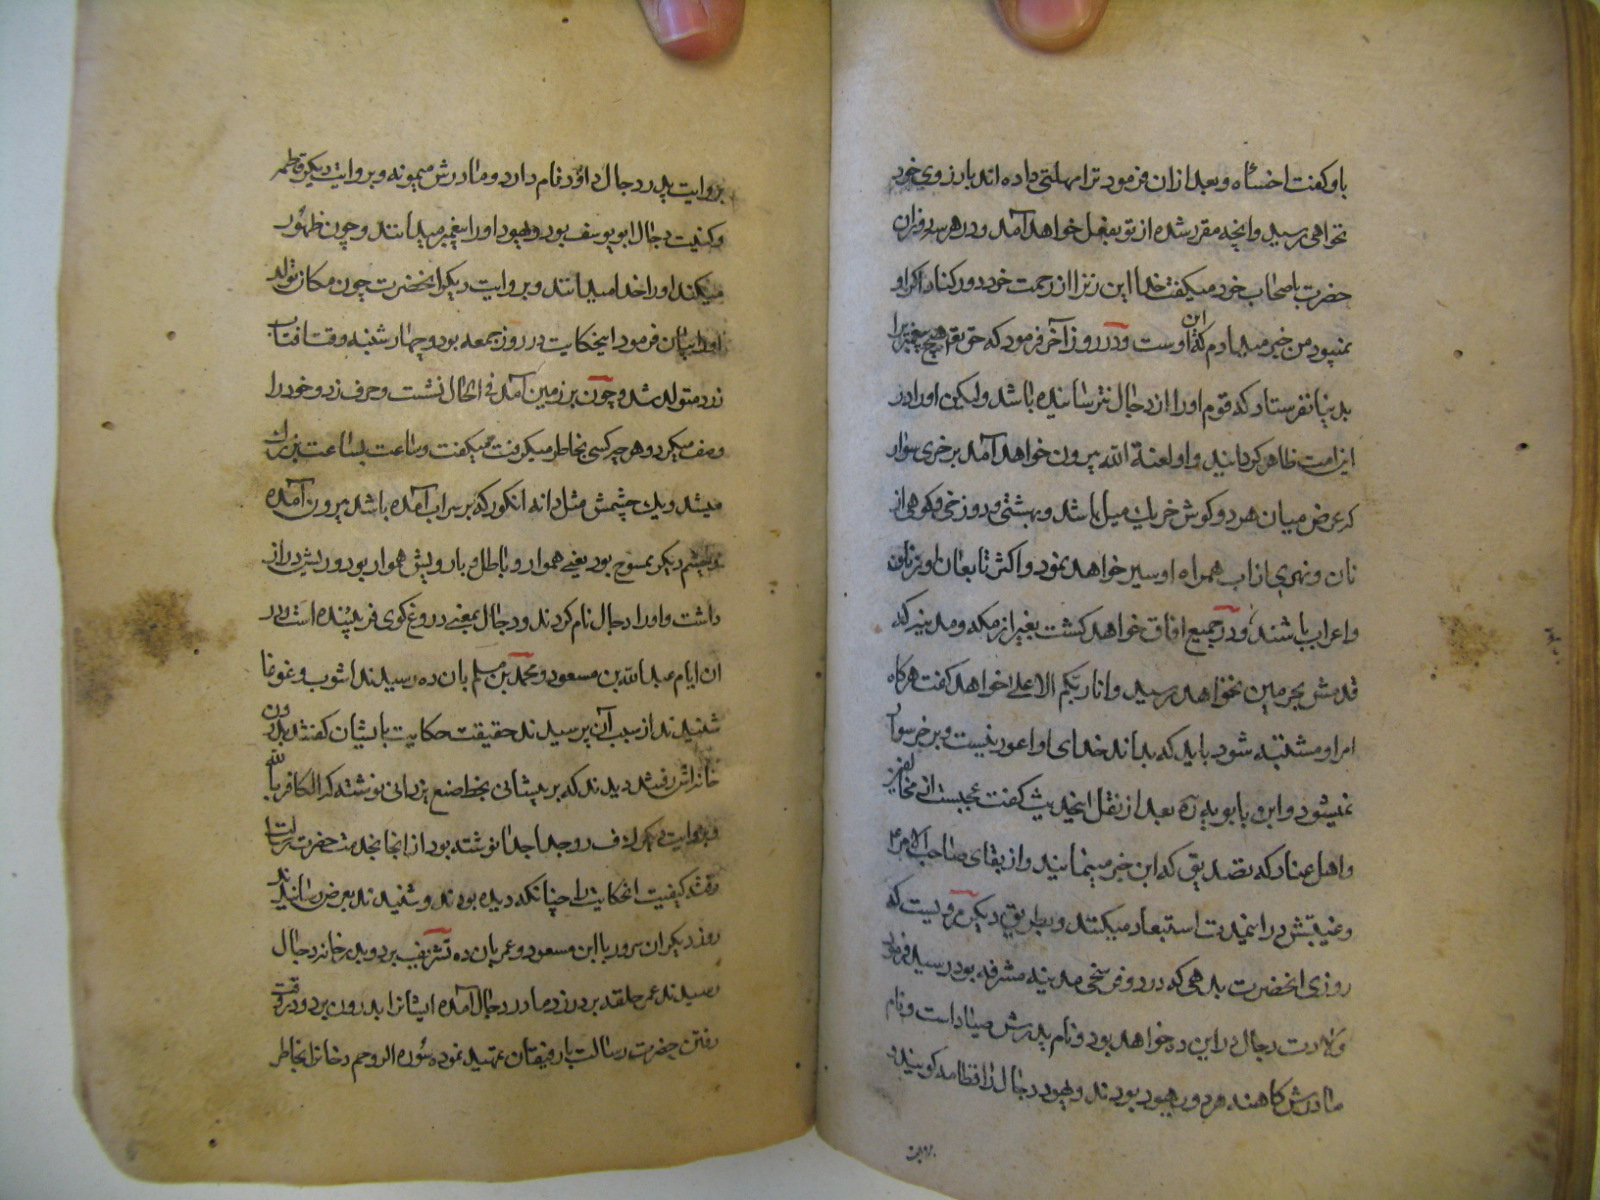 باو گفت اخساه و بعد ازان فرمود ترا مهلتی داده اند بارزوی خود
نخواهی رسید و انچه مقرر شده از تو بفعل خواهد آمد و در هر سه روز ان
حضرت باصحاب خود میگفت خدا این زن را از رحمت خود دور کناد اگر او
نمیبود من خبر میدادم که این اوست و در روز آخر فرمود که حق تع هیچ پیغمبر را
بدنیا نفرستاد که قوم او را از دجال نترسانیده باشد و لیکن او را در
این امت ظاهر گردانید و او لعنة الله بیرون خواهد آمد بر خری سوار
که عرض میان هر دو گوش خر یك میل باشد و بهشتی و دوزخی و کوهی از
نان و نهری از آب همراه او سیر خواهد نمود و اکثر تابعان او زنان
و اعراب باشند و در جمیع افاق خواهد گشت بغیر از مکه و مدینه که
قدمش بحرمین نخواهد رسید و انا ربکم الاعلی خواهد گفت هرگاه
امر او مشتبه شود باید که بداند خدای او اعور نیست و بر خر سوار
نمیشود و ابن بابویه ره بعد از نقل اینحدیث گفت عجبست از مخالفین
و اهل عناد که تصدیق که این خبر مینمایند و از بقای صاحب الامر ع
و غیبتش در این مدت استبعاد میکنند و بطریق دیگر مرویست که
روزی انحضرت بدهی که در دو فرسخی مدینه مشرفه بود رسید فرمود
ولادت دجال در این ده خواهد بود و نام پدرش صیاد است و نام
مادرش کاهنه هر دو یهود بودند و یهود دجال را فطامه گویند و
بروایت
بروایت پدر دجال داؤد نام دارد و مادرش میمونه و بروایت دیگر قطمه
و کنیت دجال ابو یوسف بود و یهود او را پیغمبر میدانند و چون ظهور
میکند او را خدا میدانند و بروایت دیگر انحضرت چون مکان تولد
او را بیان فرمود اینحکایت در روز جمعه بود و چهار شنبه وقت افتاب
زرد متولد شد و چون بر زمین آمد فی الحال نشست و حرف زد و خود را
وصف میکرد و هر چیز کسی بخاطر میگرفت میگفت و ساعت بساعت بزرك
میشد و یك چشمش مثل دانه انگور که بر سر اب آمده باشد بیرون آمده
و چشم دیگر ممسوح بود یعنی هموار و باطل و با رویش هموار بود و ریش دراز
داشت و او را دجال نام کردند و دجال بمعنی دروغ گوی فریبنده است در
ان ایام عبد الله بن مسعود و محمد بن مسلم بان ده رسیدند اشوب و غوغا
شنیدند از سبب آن پرسیدند حقیقت حکایت بایشان گفتند بدرون
خانه اش رفتند دیدند که بر پیشانی بخط صنع یزدانی نوشته که الکافر بالله
و بروایت دیگر ك ف ر و جدا جدا نوشته بود از انجا بخدمت حضرت رسالت
رفتند کیفیت انحکایت را چنانکه دیده بودند و شنیدند بعرض رسانیدند
روز دیگر ان سرور با ابن مسعود و عمر بان ده تشریف برد و بدر خانه دجال
رسیدند عمر حلقه بر در زد مادر دجال آمده ایشان را بدرون برد و در وقت
رفتن حضرت رسالت با رفیقان تمهید نموده سوره الر و حم دخان را بخاطر